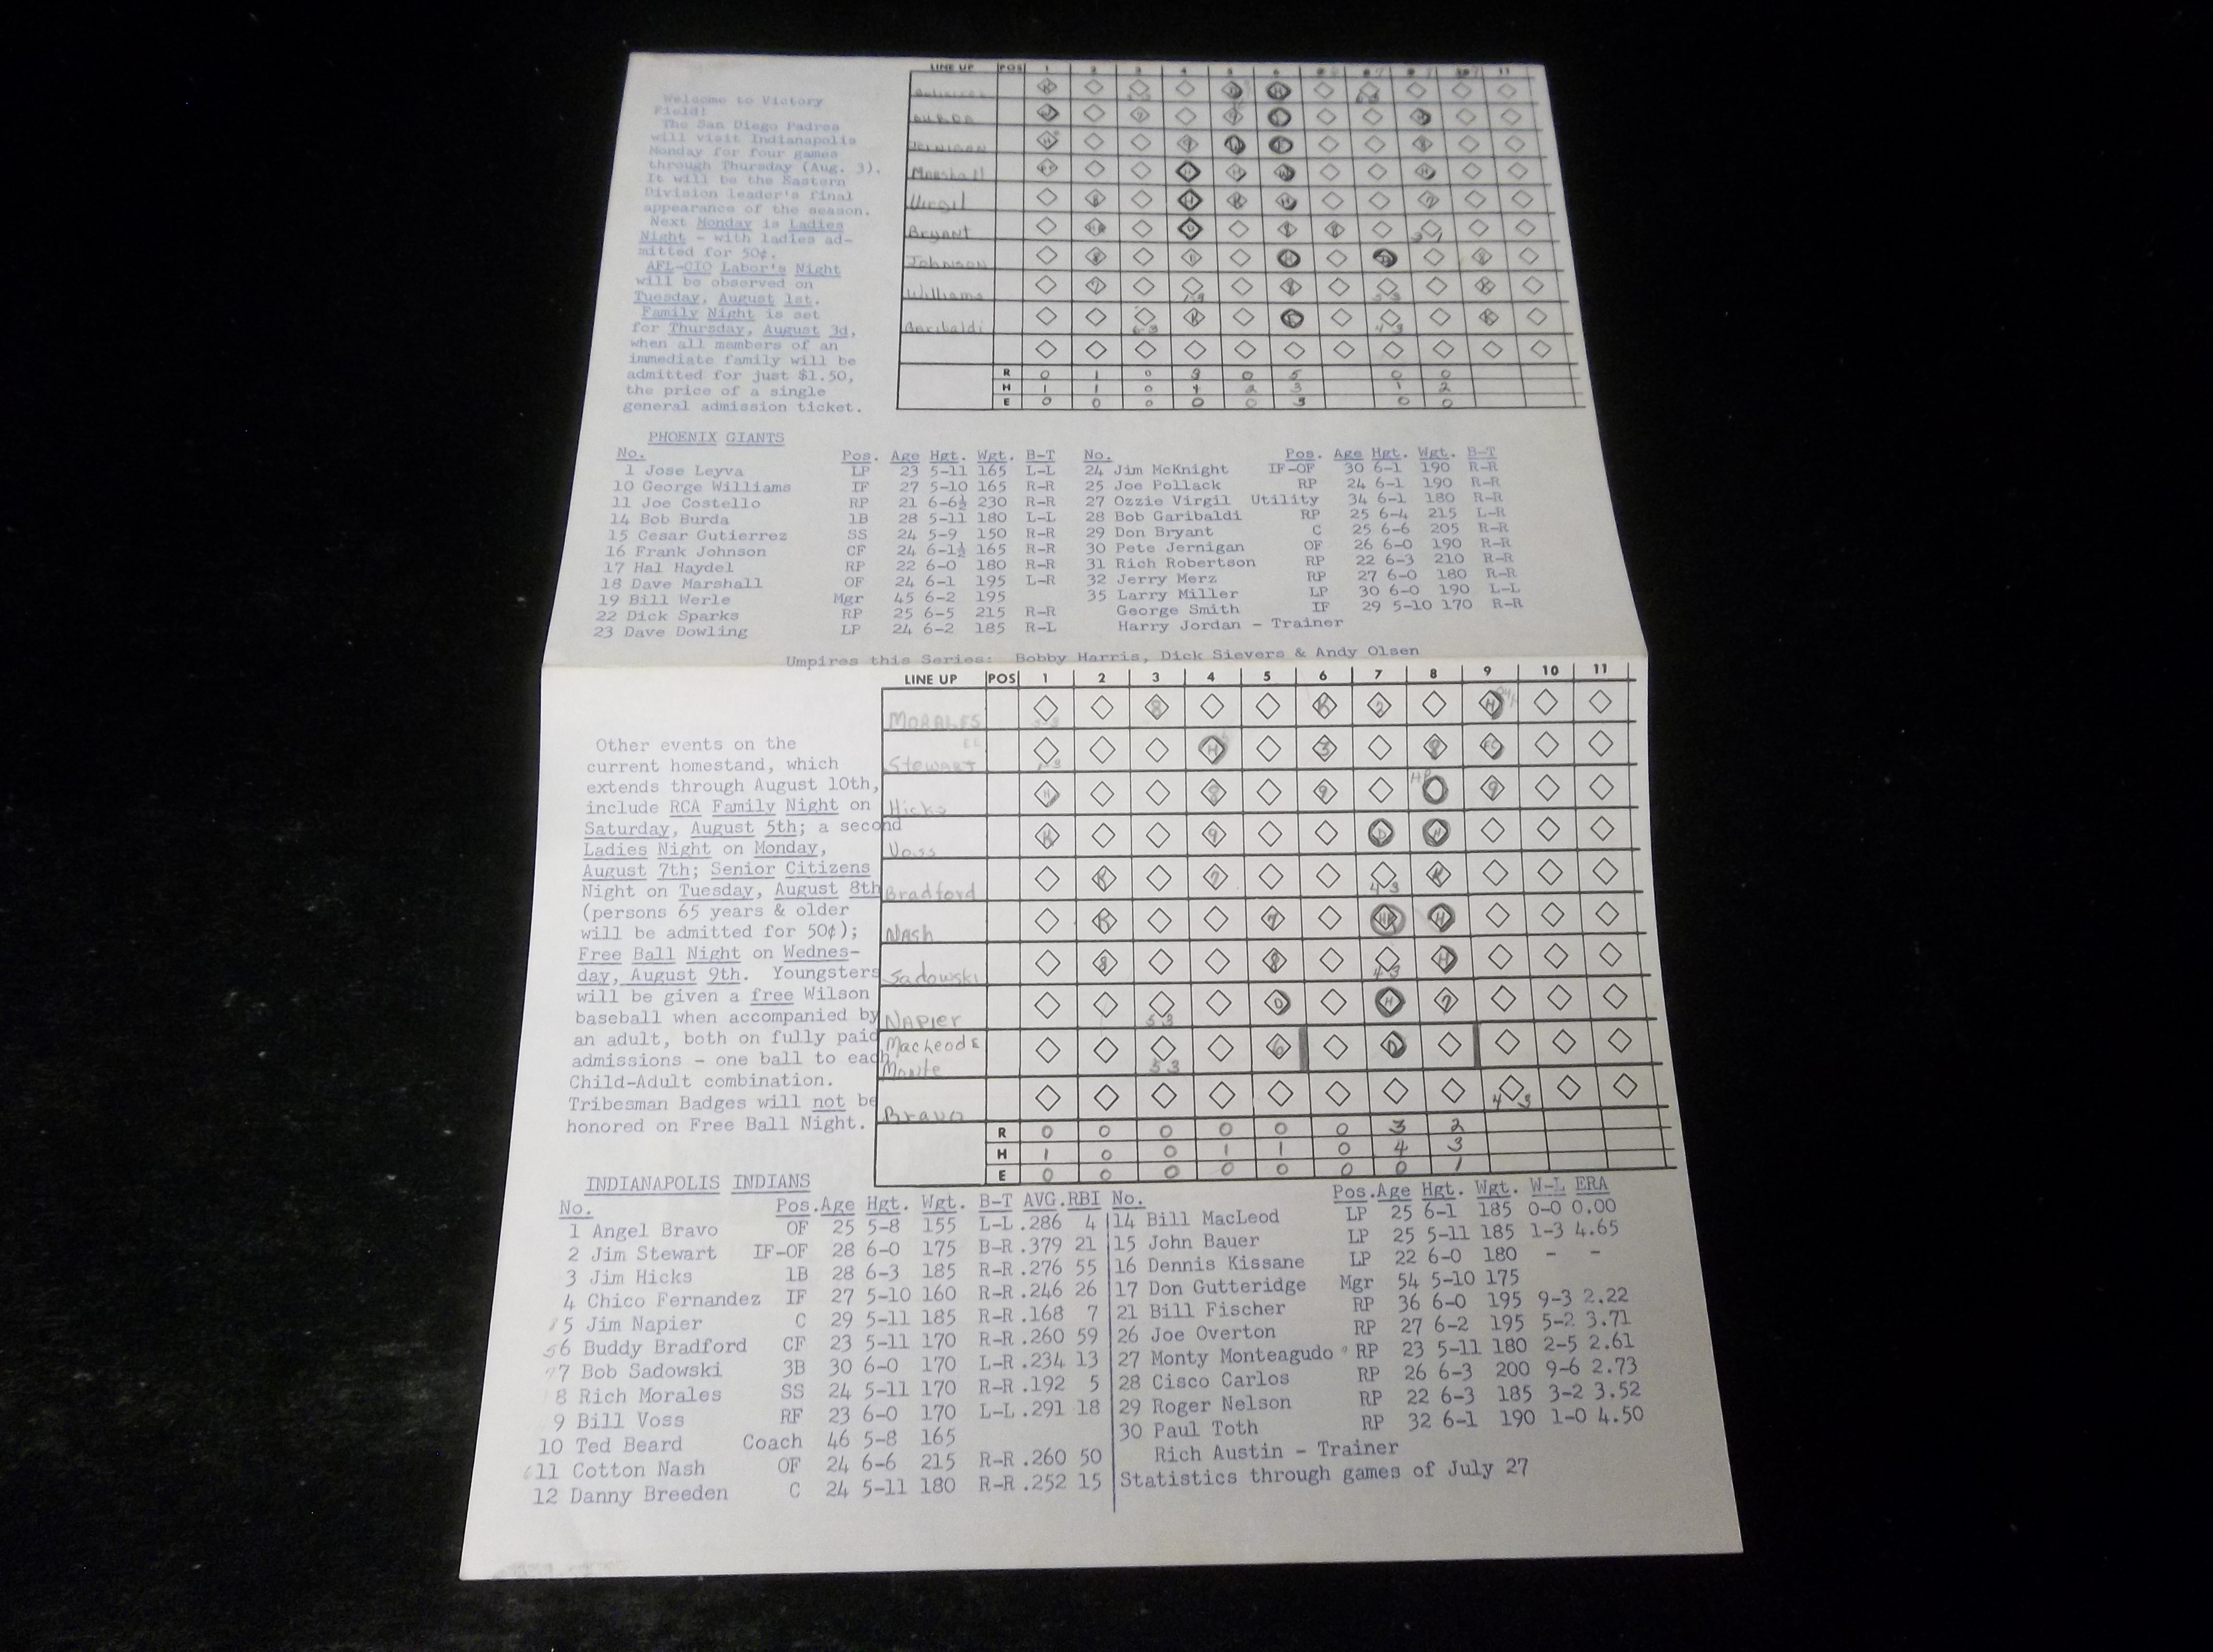 Welcome to Victory
Field!
The San Diego Padres
will visit Indianapolis
Monday for four games
through Thursday (Aug. 3).
It will be the Eastern
Division leader's final
appearance of the season.
Next Monday is Ladies
Night - with ladies ad-
mitted for 50¢.
AFL-CIO Labor's Night
will be observed on
Tuesday, August 1st.
Family Night is set
for Thursday, August 3d,
when all members of an
immediate family will be
admitted for just $1.50,
the price of a single
general admission ticket.
LINE UP POS 1 2 3 4 5 6 11
Burda
Jernigan
Marshall
Virgil
Bryant
Johnson
Williams
Garibaldi
R 0 1 0 3 0 5 0 0
H 1 1 0 4 2 3 1 2
E 0 0 0 0 0 3 0 0
PHOENIX GIANTS
No. Pos. Age Hgt. Wgt. B-T No. Pos. Age Hgt. Wgt. B-T
1 Jose Leyva LP 23 5-11 165 L-L 24 Jim McKnight IF-OF 30 6-1 190 R-R
10 George Williams IF 27 5-10 165 R-R 25 Joe Pollack RP 24 6-1 190 R-R
11 Joe Costello RP 21 6-6½ 230 R-R 27 Ozzie Virgil Utility 34 6-1 180 R-R
14 Bob Burda 1B 28 5-11 180 L-L 28 Bob Garibaldi RP 25 6-4 215 L-R
15 Cesar Gutierrez SS 24 5-9 150 R-R 29 Don Bryant C 25 6-6 205 R-R
16 Frank Johnson CF 24 6-1½ 165 R-R 30 Pete Jernigan OF 26 6-0 190 R-R
17 Hal Haydel RP 22 6-0 180 R-R 31 Rich Robertson RP 22 6-3 210 R-R
18 Dave Marshall OF 24 6-1 195 L-R 32 Jerry Merz RP 27 6-0 180 R-R
19 Bill Werle Mgr 45 6-2 195 35 Larry Miller LP 30 6-0 190 L-L
22 Dick Sparks RP 25 6-5 215 R-R George Smith IF 29 5-10 170 R-R
23 Dave Dowling LP 24 6-2 185 R-L Harry Jordan - Trainer
Umpires this Series: Bobby Harris, Dick Sievers & Andy Olsen
Other events on the
current homestand, which
extends through August 10th,
include RCA Family Night on
Saturday, August 5th; a second
Ladies Night on Monday,
August 7th; Senior Citizens
Night on Tuesday, August 8th
(persons 65 years & older
will be admitted for 50¢);
Free Ball Night on Wednes-
day, August 9th. Youngsters
will be given a free Wilson
baseball when accompanied by
an adult, both on fully paid
admissions - one ball to each
Child-Adult combination.
Tribesman Badges will not be
honored on Free Ball Night.
LINE UP POS 1 2 3 4 5 6 7 8 9 10 11
MORALES 8 K 2 H
Stewart 1-3 H 3 8 FC
Hicks H 8 9 HP 9
Voss K 9 D H
Bradford K 7 4 3 K
Nash K 7 HR H
Sadowski 8 8 4 3 H
NAPIER 5 3 D H 7
MacLeod &
Monte 5 3 6 D
Bravo 4 3
R 0 0 0 0 0 0 3 2
H 1 0 0 1 1 0 4 3
E 0 0 0 0 0 0 0 1
INDIANAPOLIS INDIANS
No. Pos. Age Hgt. Wgt. B-T AVG. RBI No. Pos. Age Hgt. Wgt. W-L ERA
1 Angel Bravo OF 25 5-8 155 L-L .286 4 14 Bill MacLeod LP 25 6-1 185 0-0 0.00
2 Jim Stewart IF-OF 28 6-0 175 B-R .379 21 15 John Bauer LP 25 5-11 185 1-3 4.65
3 Jim Hicks 1B 28 6-3 185 R-R .276 55 16 Dennis Kissane LP 22 6-0 180 - -
4 Chico Fernandez IF 27 5-10 160 R-R .246 26 17 Don Gutteridge Mgr 54 5-10 175
5 Jim Napier C 29 5-11 185 R-R .168 7 21 Bill Fischer RP 36 6-0 195 9-3 2.22
6 Buddy Bradford CF 23 5-11 170 R-R .260 59 26 Joe Overton RP 27 6-2 195 5-2 3.71
7 Bob Sadowski 3B 30 6-0 170 L-R .234 13 27 Monty Monteagudo RP 23 5-11 180 2-5 2.61
8 Rich Morales SS 24 5-11 170 R-R .192 5 28 Cisco Carlos RP 26 6-3 200 9-6 2.73
9 Bill Voss RF 23 6-0 170 L-L .291 18 29 Roger Nelson RP 22 6-3 185 3-2 3.52
10 Ted Beard Coach 46 5-8 165 30 Paul Toth RP 32 6-1 190 1-0 4.50
11 Cotton Nash OF 24 6-6 215 R-R .260 50 Rich Austin - Trainer
12 Danny Breeden C 24 5-11 180 R-R .252 15 Statistics through games of July 27